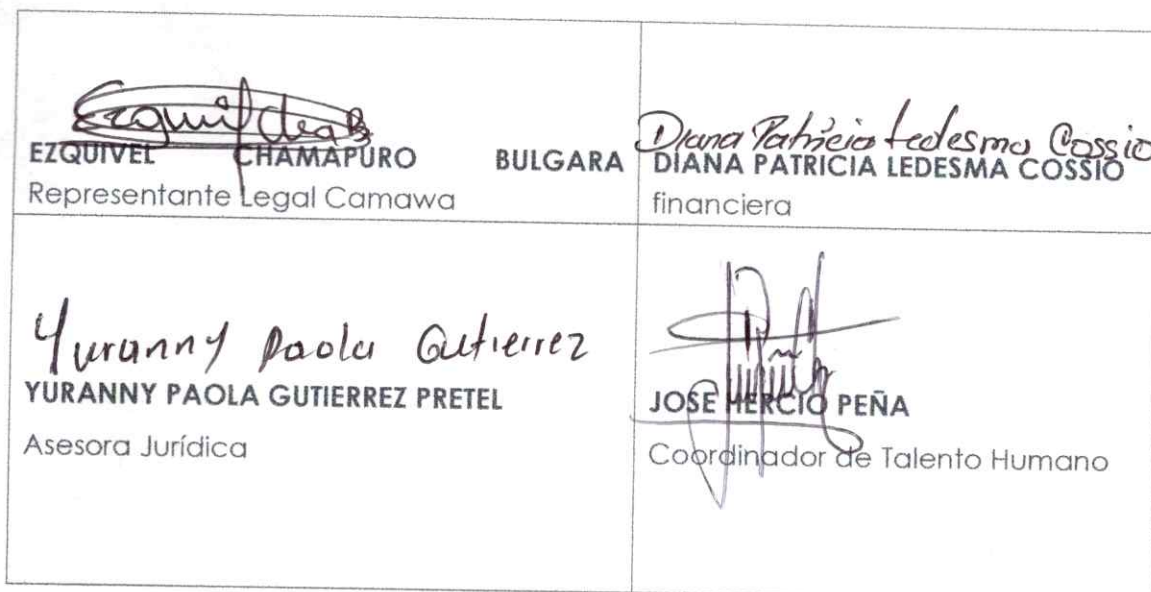 EZQUIVEL CHAMAPURO BULGARA
Representante Legal Camawa
Diana Patricia Ledesma Cossio
DIANA PATRICIA LEDESMA COSSIO
financiera
Yuranny Paola Gutierrez
YURANNY PAOLA GUTIERREZ PRETEL
Asesora Jurídica
JOSE HERCIO PEÑA
Coordinador de Talento Humano